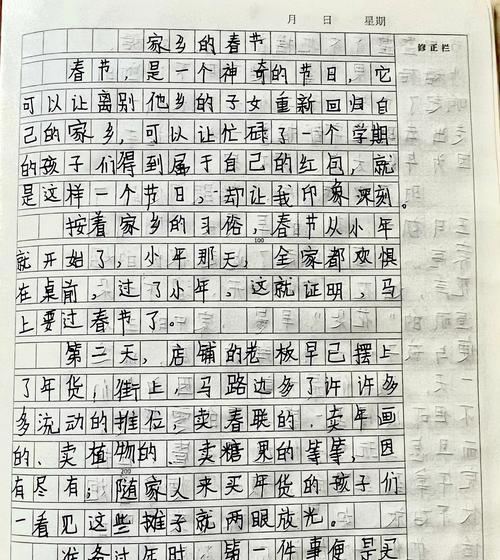 月 日 星期
修正栏
家乡的春节
春节，是一个神奇的节日，它
可以让离别他乡的子女重新回归自
己的家乡，可以让忙碌了一个学期
的孩子们得到属于自己的红包，就
是这样一个节日，却让我印象深刻。
按着家乡的习俗，春节从小年
100
就开始了，小年那天，全家都欢惧
在桌前，过了小年，这就证明，马
上要过春节了。
第二天，店铺的老板早已摆上
了年货，街上，马路边多了许许多
多流动的推位，卖春联的、卖年画
的、卖植物的、卖糖果的等等，因
200
有尽有；随家人来买年货的孩子们
一看见这些摊子就两眼放光。
准备过年时，第一件事便是买